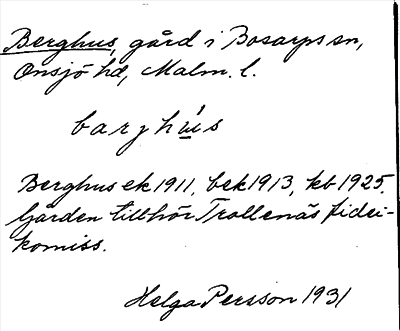 Berghus, gård i Bosarps sn,
Onsjö hd, Malm. l.
barjhú̱s
Berghus ek 1911, bek 1913, kb 1925.
Gården tillhör Trollenäs fidei-
komiss.
Helga Persson 1931